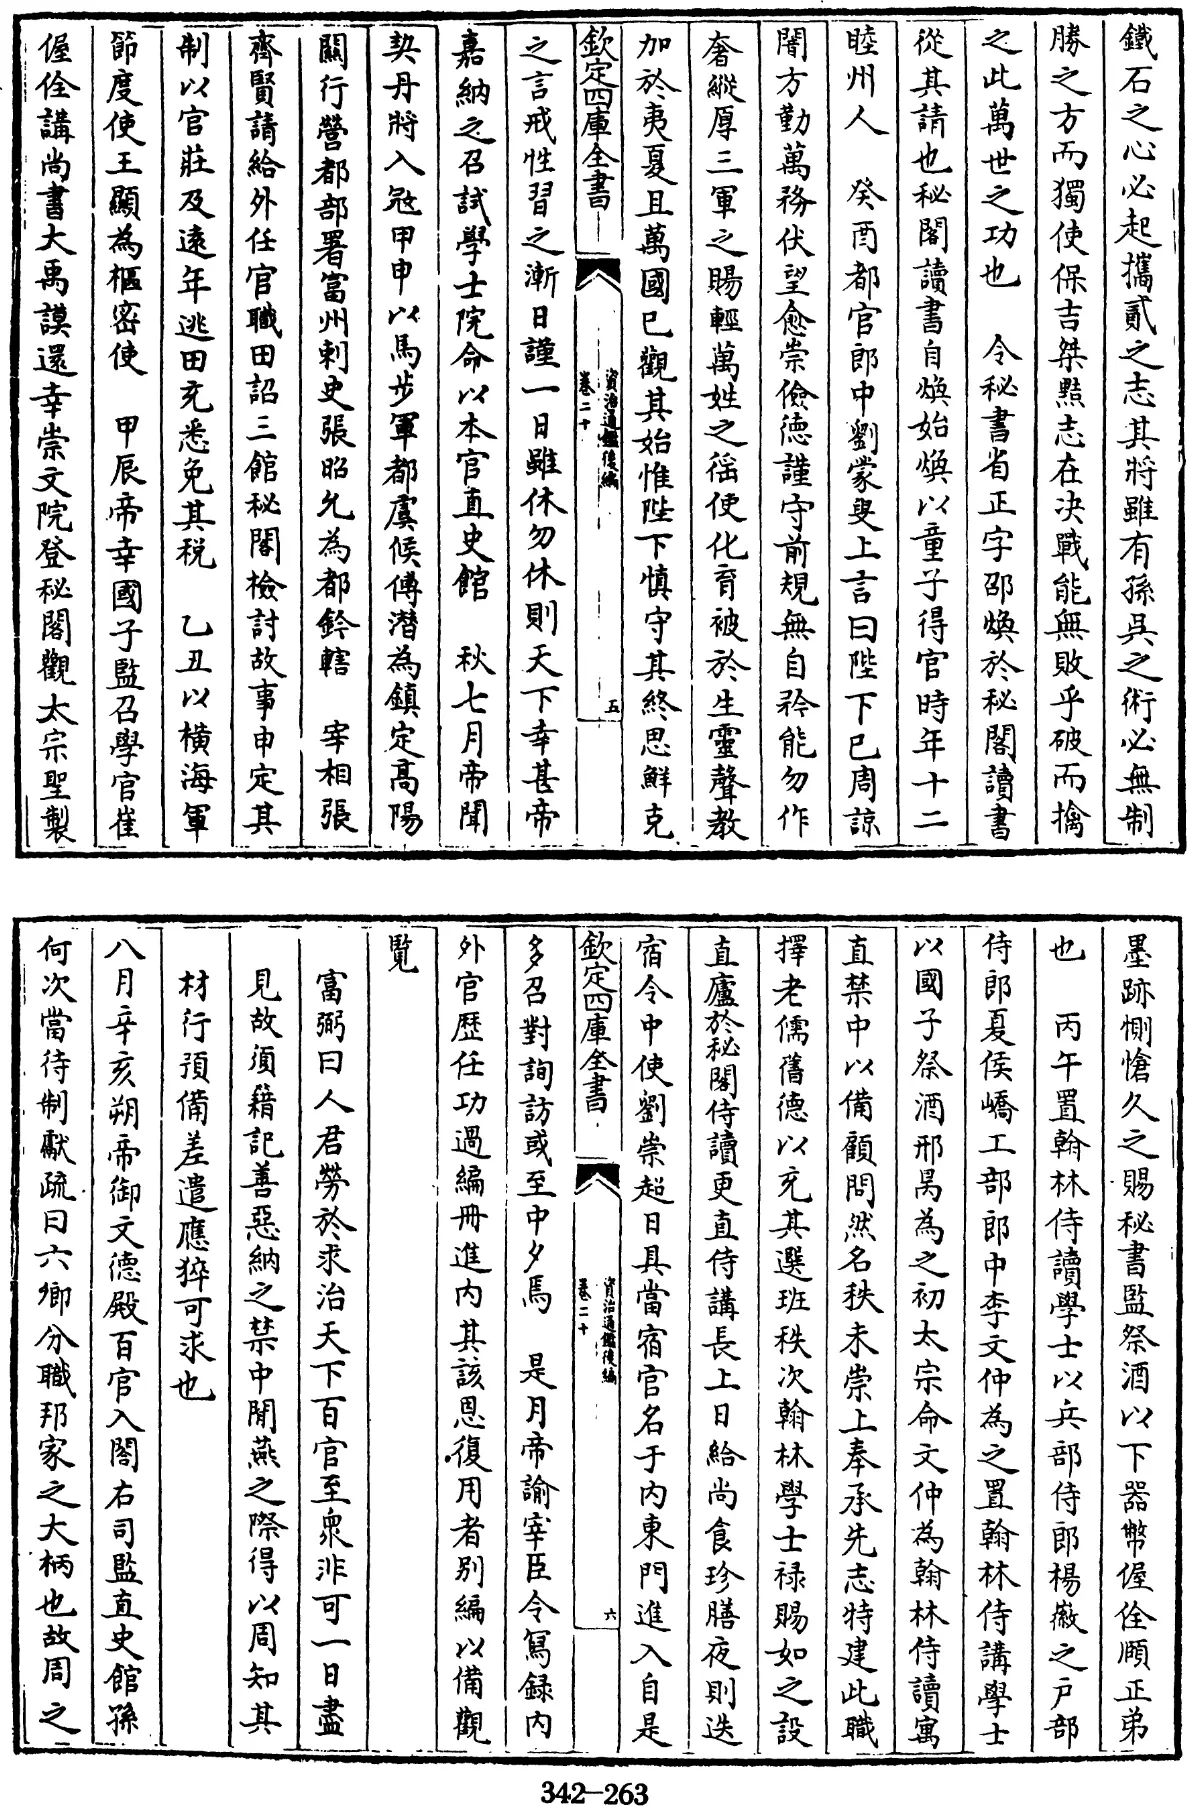 鐵石之心必起攜貳之志其將雖有孫吳之術必無制
勝之方而獨使保吉桀黠志在决戰能無敗乎破而擒
之此萬世之功也　令秘書省正字邵煥於秘閣讀書
從其請也秘閣讀書自煥始煥以童子得官時年十二
睦州人　癸酉都官郎中劉蒙叟上言曰陛下已周諒
闇方勤萬務伏望愈崇儉德謹守前規無自矜能勿作
奢縱厚三軍之賜輕萬姓之徭使化育被於生靈聲教
加於夷夏且萬國已觀其始惟陛下慎守其終思鮮克
欽定四庫全書
資治通鑑後編
卷二十
五
之言戒性習之漸日謹一日雖休勿休則天下幸甚帝
嘉納之召試學士院命以本官直史館　秋七月帝聞
契丹將入冦甲申以馬步軍都虞候傅潛為鎮定高陽
關行營都部署富州刺史張昭允為都鈐轄　宰相張
齊賢請給外任官職田詔三館秘閣檢討故事申定其
制以官莊及遠年逃田充悉免其税　乙丑以橫海軍
節度使王顯為樞密使　甲辰帝幸國子監召學官崔
偓佺講尚書大禹謨還幸崇文院登秘閣觀太宗聖製
墨跡惻愴久之賜秘書監祭酒以下器幣偓佺頤正弟
也　丙午置翰林侍讀學士以兵部侍郎楊徽之戸部
侍郎夏侯嶠工部郎中李文仲為之置翰林侍講學士
以國子祭酒邢昺為之初太宗命文仲為翰林侍讀寓
直禁中以備顧問然名秩未崇上奉承先志特建此職
擇老儒舊德以充其選班秩次翰林學士禄賜如之設
直廬於秘閣侍讀更直侍講長上日給尚食珍膳夜則迭
宿令中使劉崇超日具當宿官名于内東門進入自是
欽定四庫全書
資治通鑑後編
卷二十
六
多召對詢訪或至中夕焉　是月帝諭宰臣令寫録内
外官歷任功過編冊進内其該恩復用者别編以備觀
覽
富弼曰人君勞於求治天下百官至衆非可一日盡
見故須籍記善惡納之禁中閒燕之際得以周知其
材行預備差遣應猝可求也
八月辛亥朔帝御文德殿百官入閤右司監直史館孫
何次當待制獻疏曰六卿分職邦家之大柄也故周之
342-263